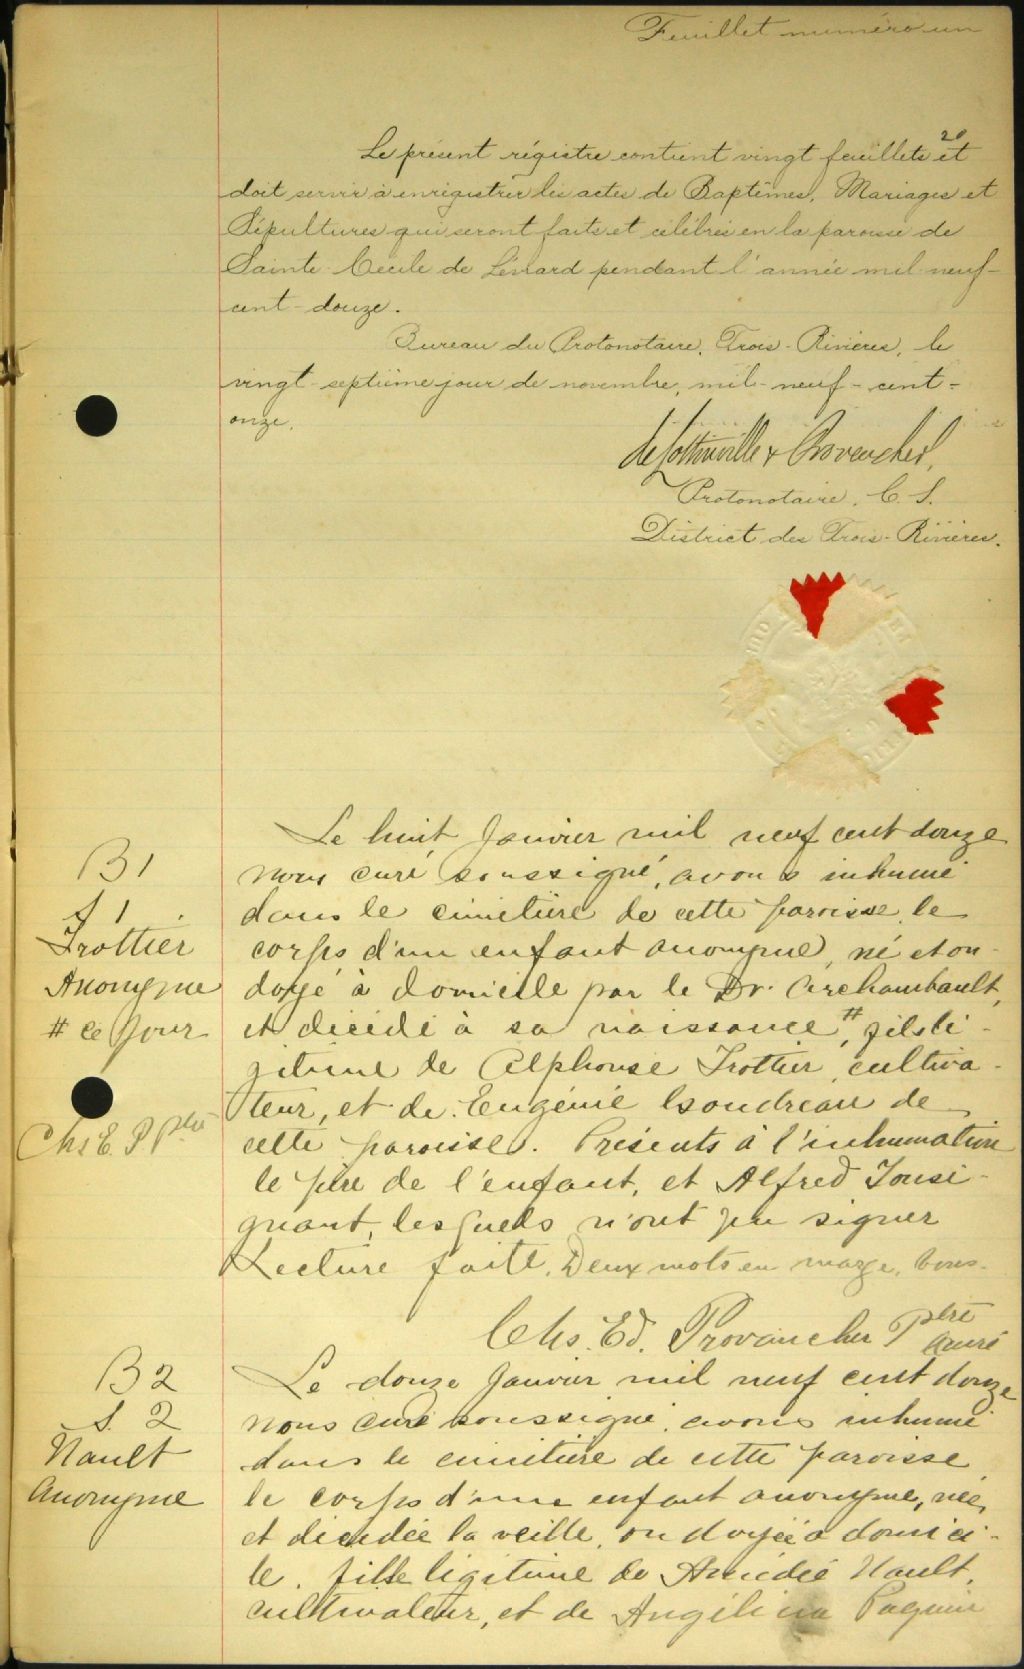 Feuillet numéro un
20
Le présent régistre contient vingt feuillets et
doit servir à enregistrer les actes de Baptêmes, Mariages et
Sépultures qui seront faits et célébrés en la paroisse de
Sainte Cécile de Lévrard pendant l'année mil-neuf-
cent-douze.
Bureau du Protonotaire, Trois-Rivières, le
vingt-septième jour de novembre, mil-neuf-cent-
onze.
de Lottinville & Provencher,
Protonotaire, C. S.
District des Trois-Rivières.
B 1
S 1.
Trottier
Anonyme
# ce jour
Chs E. P Ptre
Le huit Janvier mil neuf cent douze
nous curé soussigné, avons inhumé
dans le cimetière de cette paroisse, le
corps d'un enfant anonyme, né et on-
doyé à domicile par le Dr. Archambault,
et décédé à sa naissance #, fils lé-
gitime de Alphonse Trottier, cultiva-
teur, et de Eugénie Boudreau de
cette paroisse. Présents à l'inhumation
le père de l'enfant, et Alfred Tousi-
gnant, lesquels n'ont pu signer
Lecture faite. Deux mots en marge, bons.
Chs. Ed. Provancher Ptre
curé
B 2
S. 2
Nault
Anonyme
Le douze Janvier mil neuf cent douze
nous curé soussigné, avons inhumé
dans le cimetière de cette paroisse
le corps d'une enfant anonyme, née,
et décédée la veille, ondoyée à domici-
le, fille légitime de Amédée Nault,
cultivateur, et de Angélina Paquin